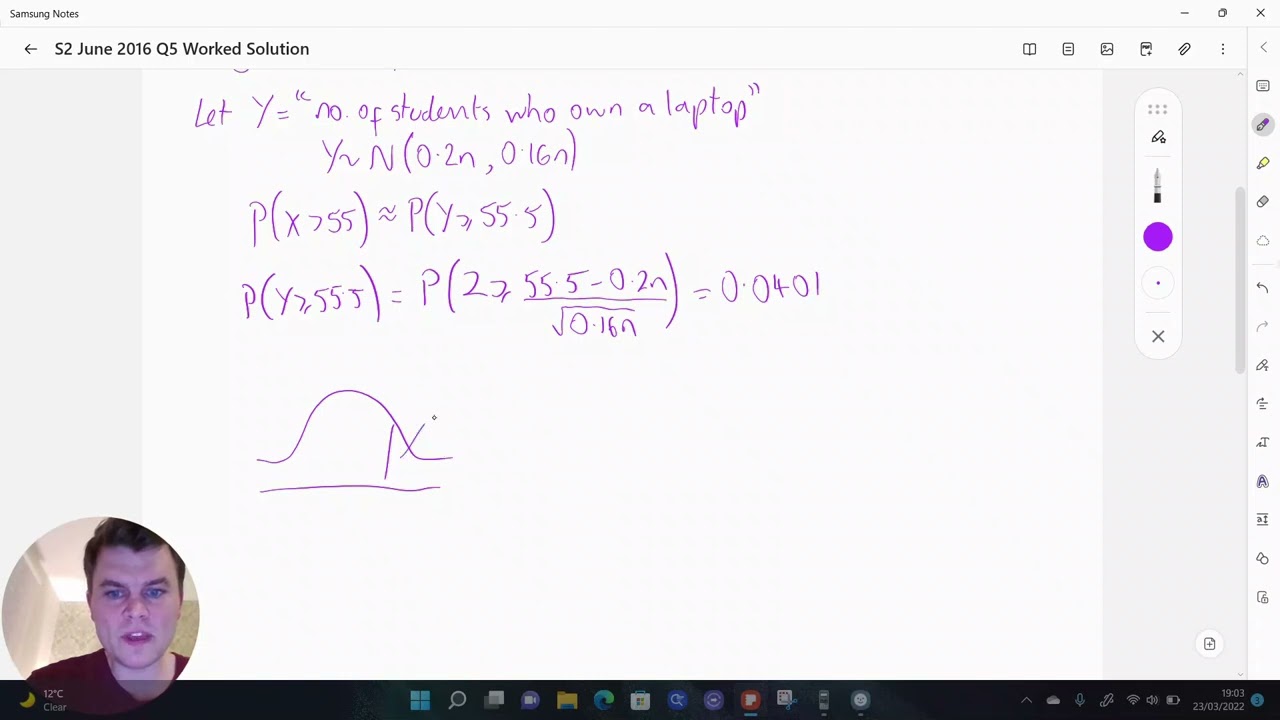 Samsung Notes
S2 June 2016 Q5 Worked Solution
Let Y = "no. of students who own a laptop"
Y~ N(0.2n, 0.16n)
P(X > 55) ≈ P(Y ⩾ 55.5)
P(Y ⩾ 55.5) = P(Z ⩾ (55.5 - 0.2n)/√(0.16n)) = 0.0401
12°C
Clear
19:03
23/03/2022